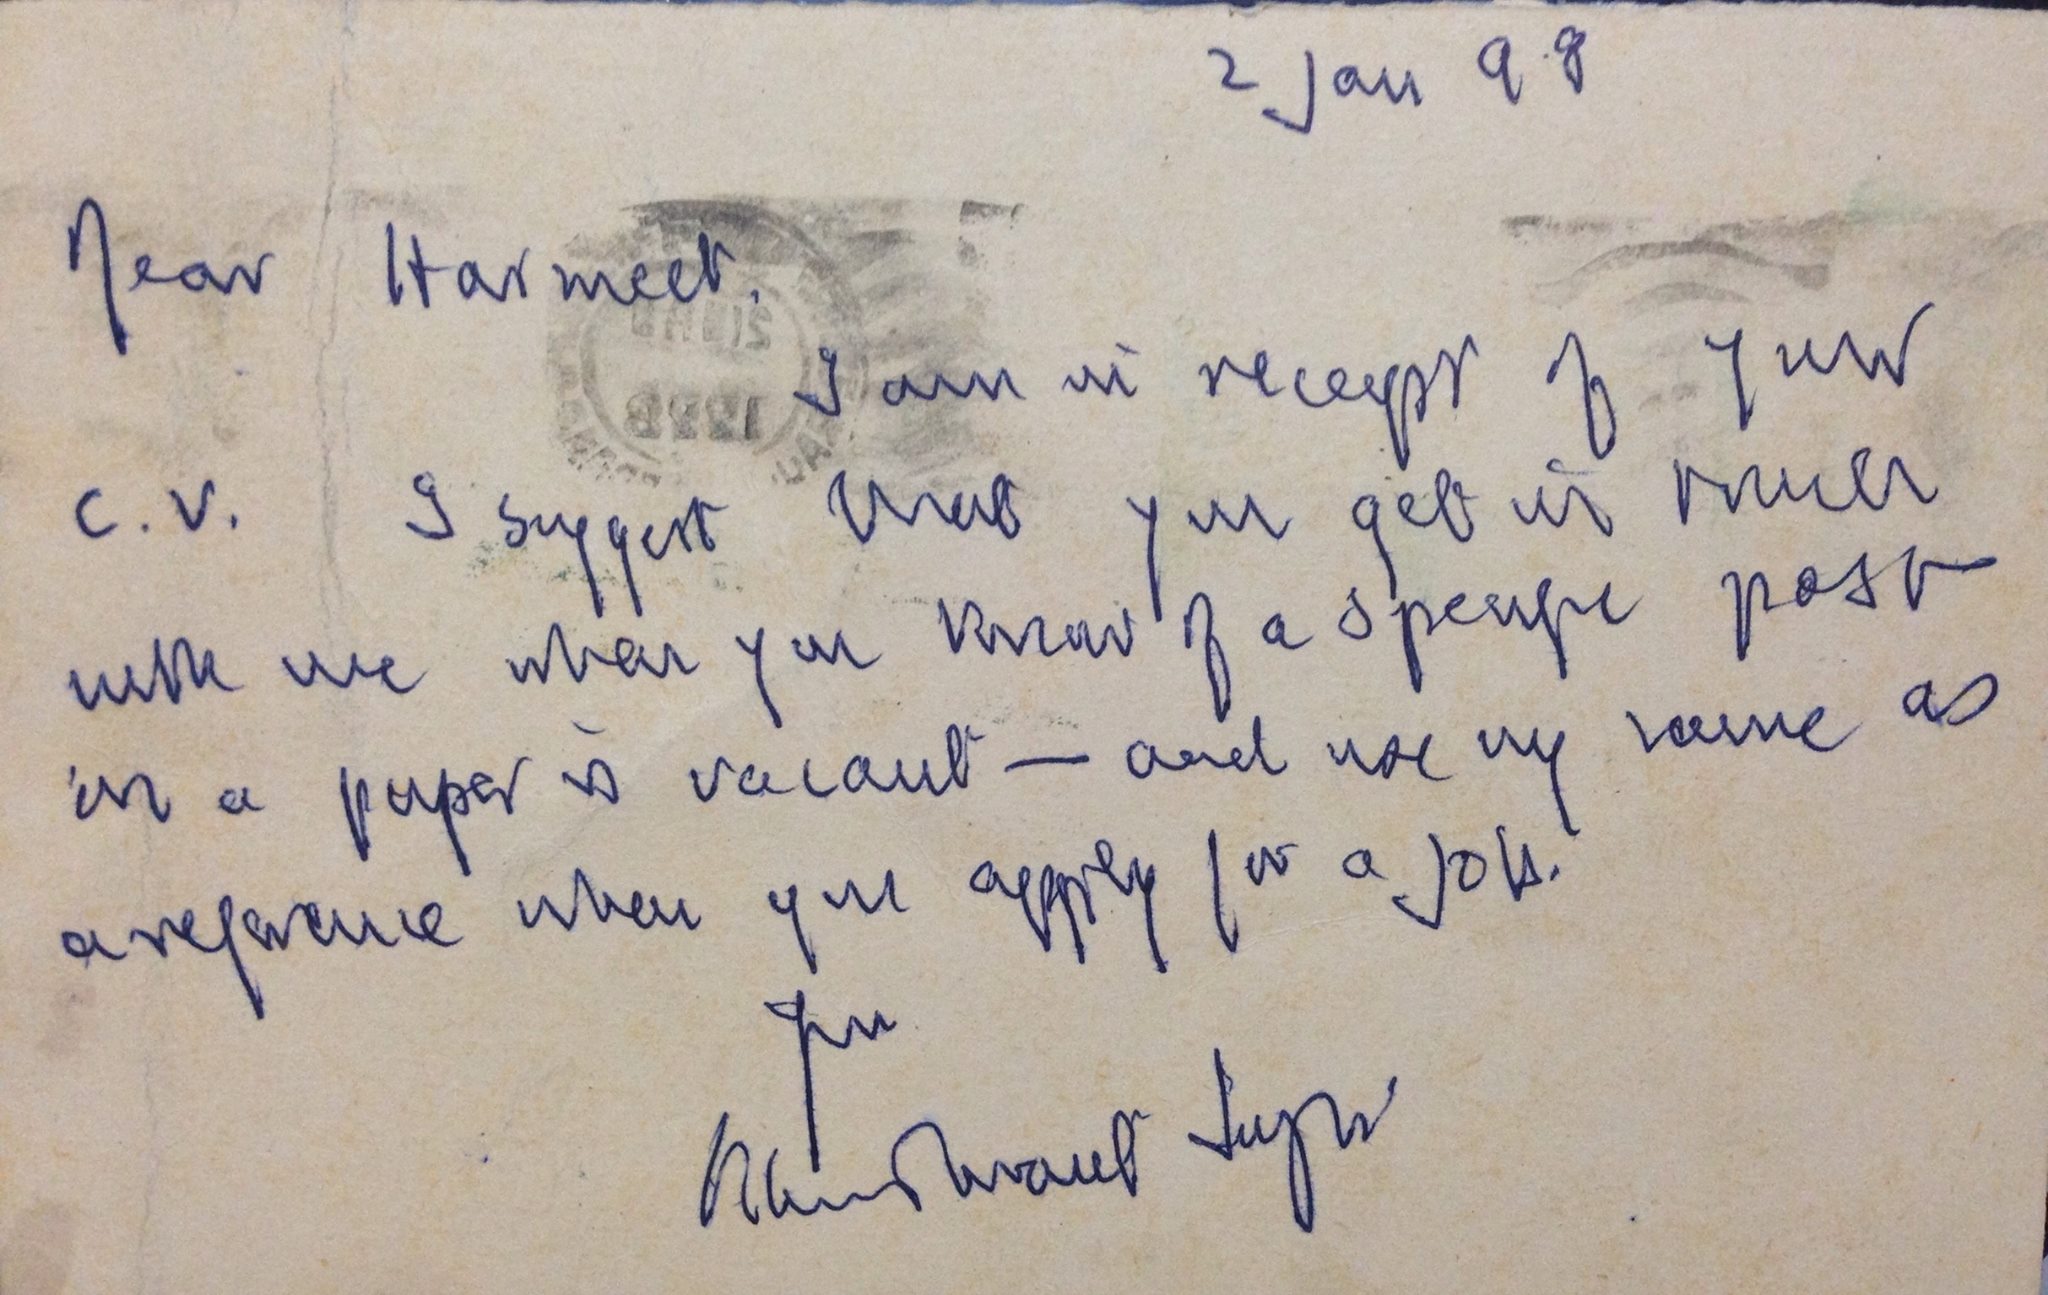 2 Jan 98
Dear Harmeet,
I am in receipt of your
C.V. I suggest that you get in touch
with me when you know of a specific post
in a paper is vacant — and use my name as
a reference when you apply for a job.
Yours
Khushwant Singh